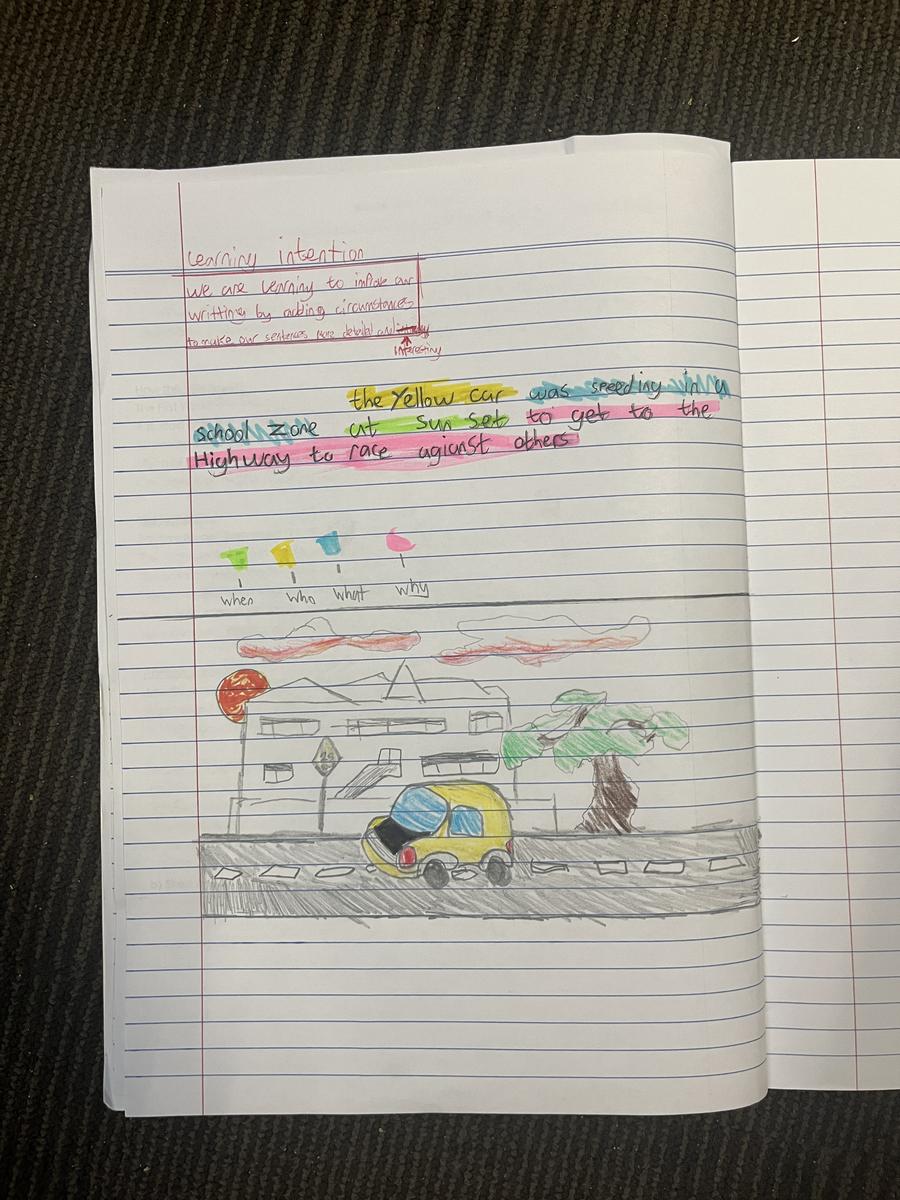 Learning intention
we are Lerning to improve our
writting by adding circumstances
to make our sentences more detailed and
interesting
the Yellow car was speeding in a
school zone at sun set to get to the
Highway to race agianst others
when who what why